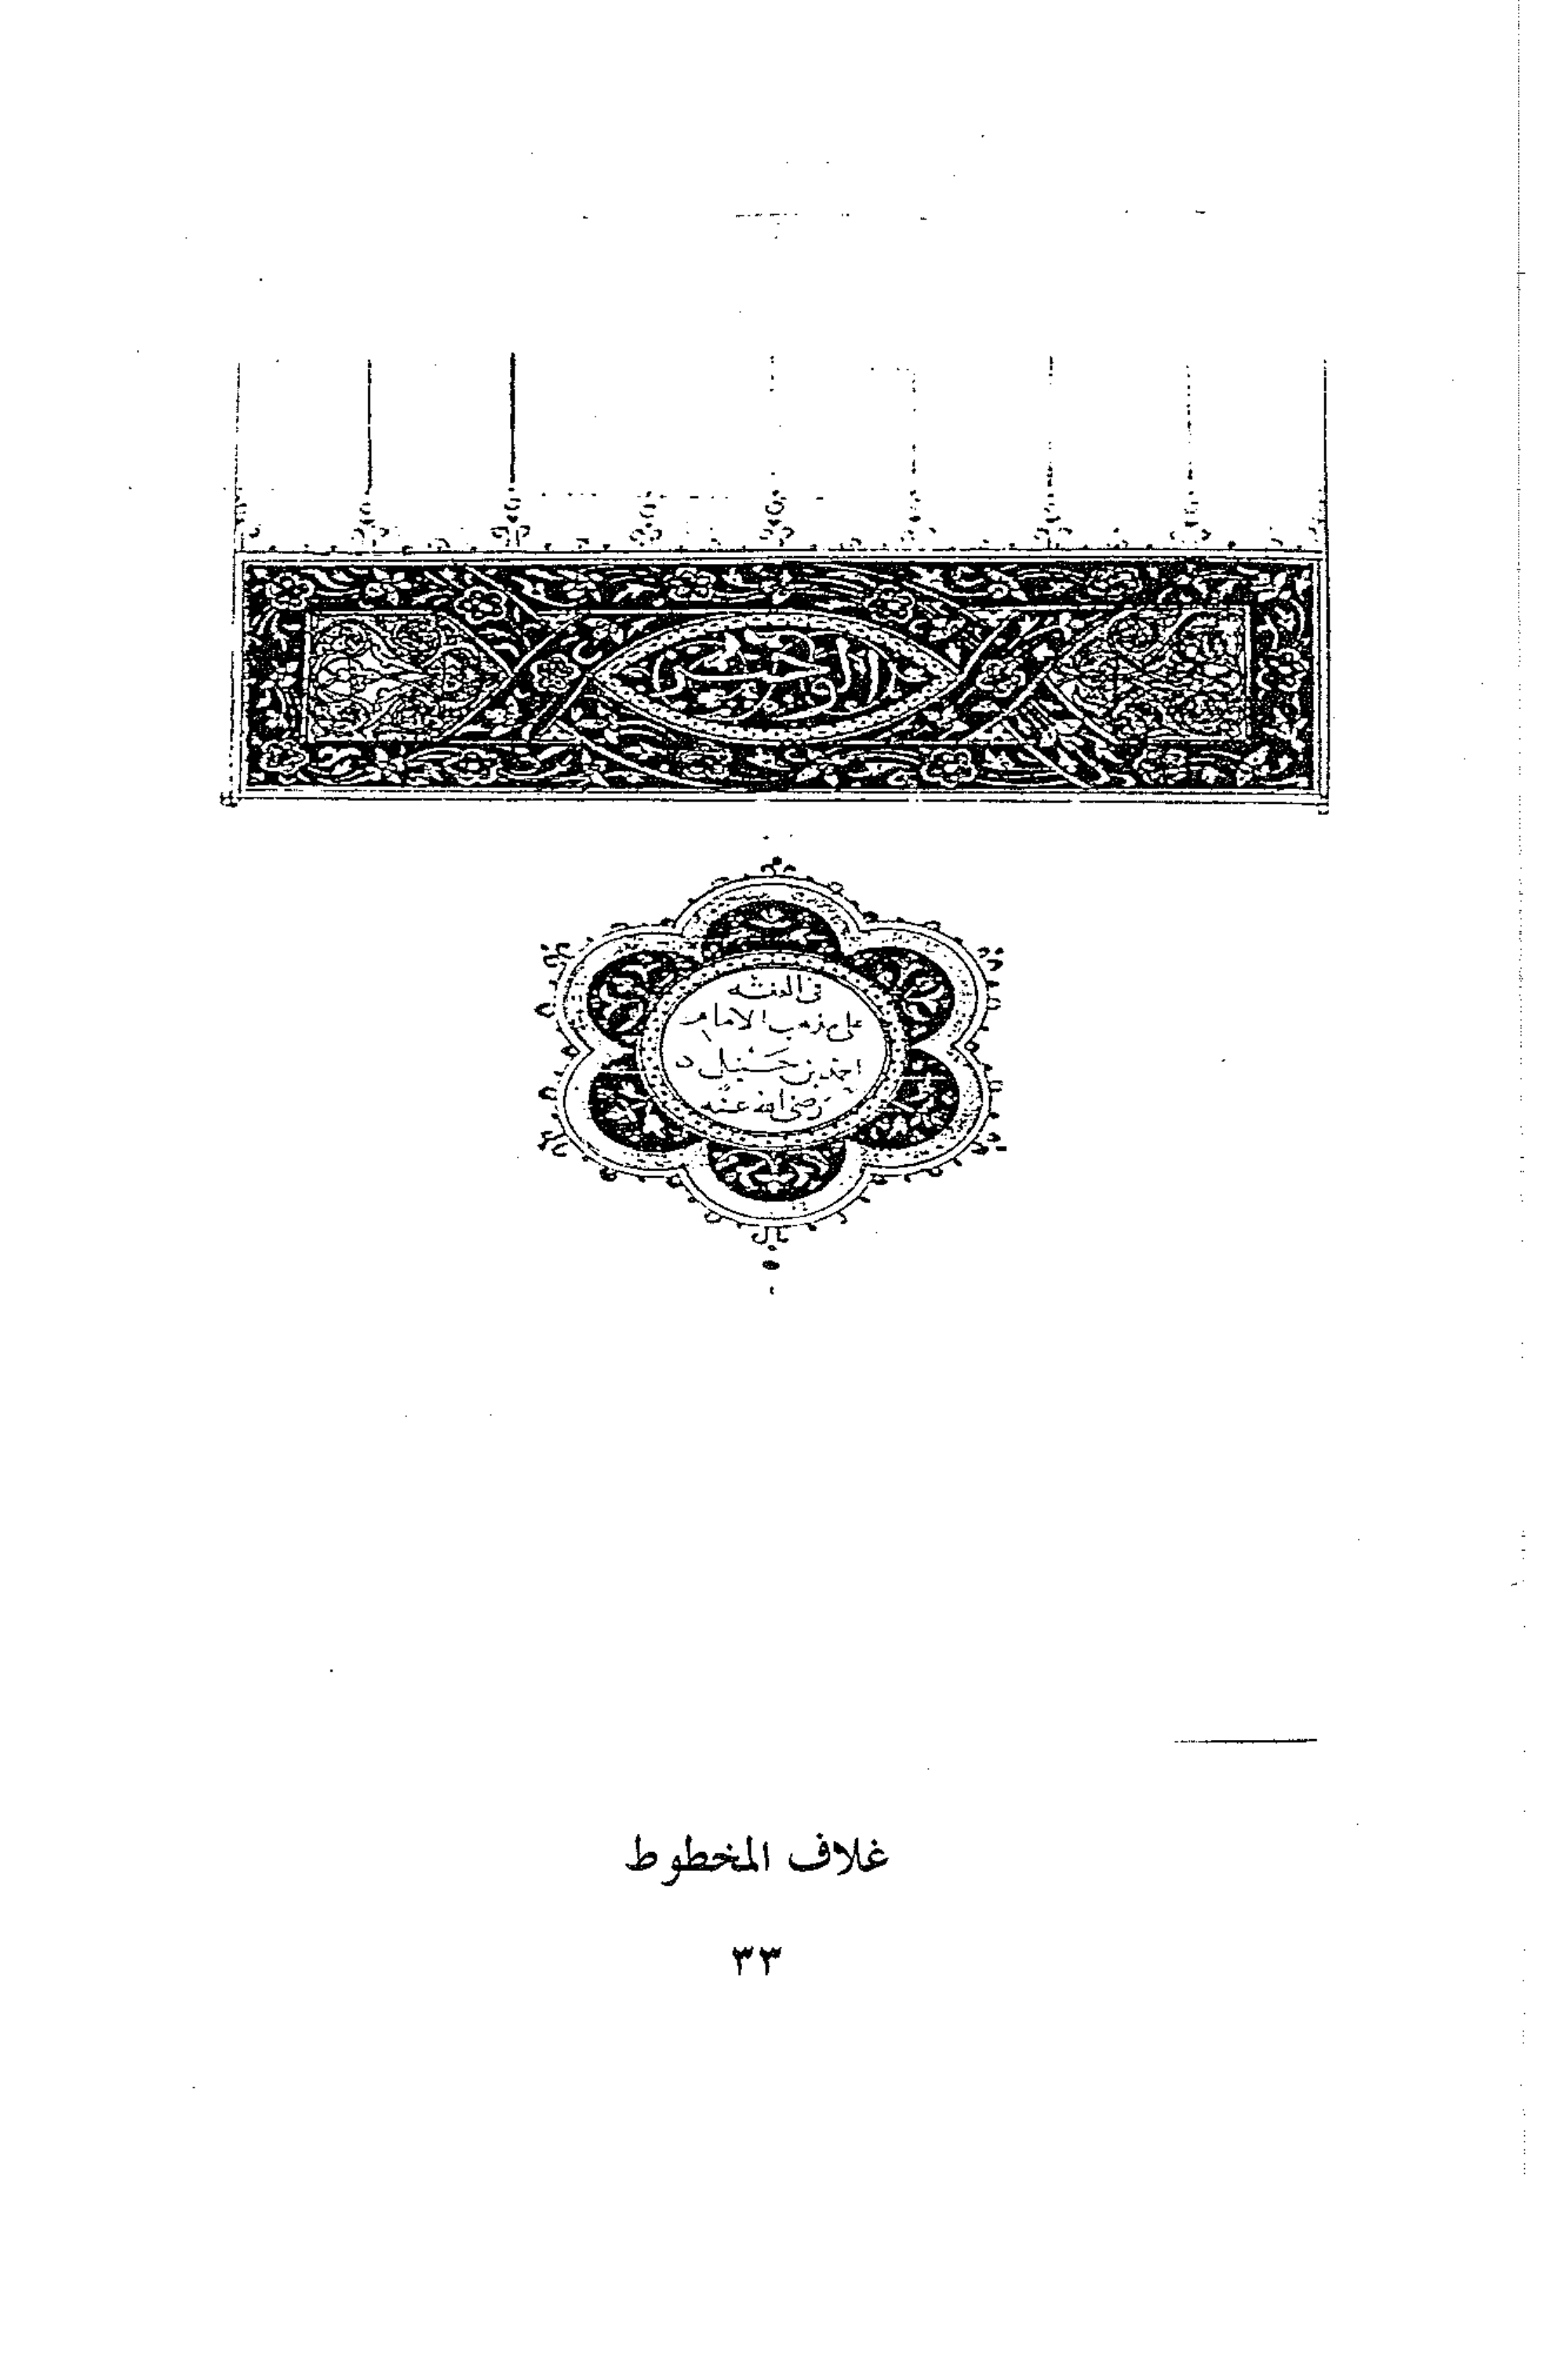 في الفقه
على مذهب الامام
احمد بن حنبل
رضي الله عنه
غلاف المخطوط
٣٣